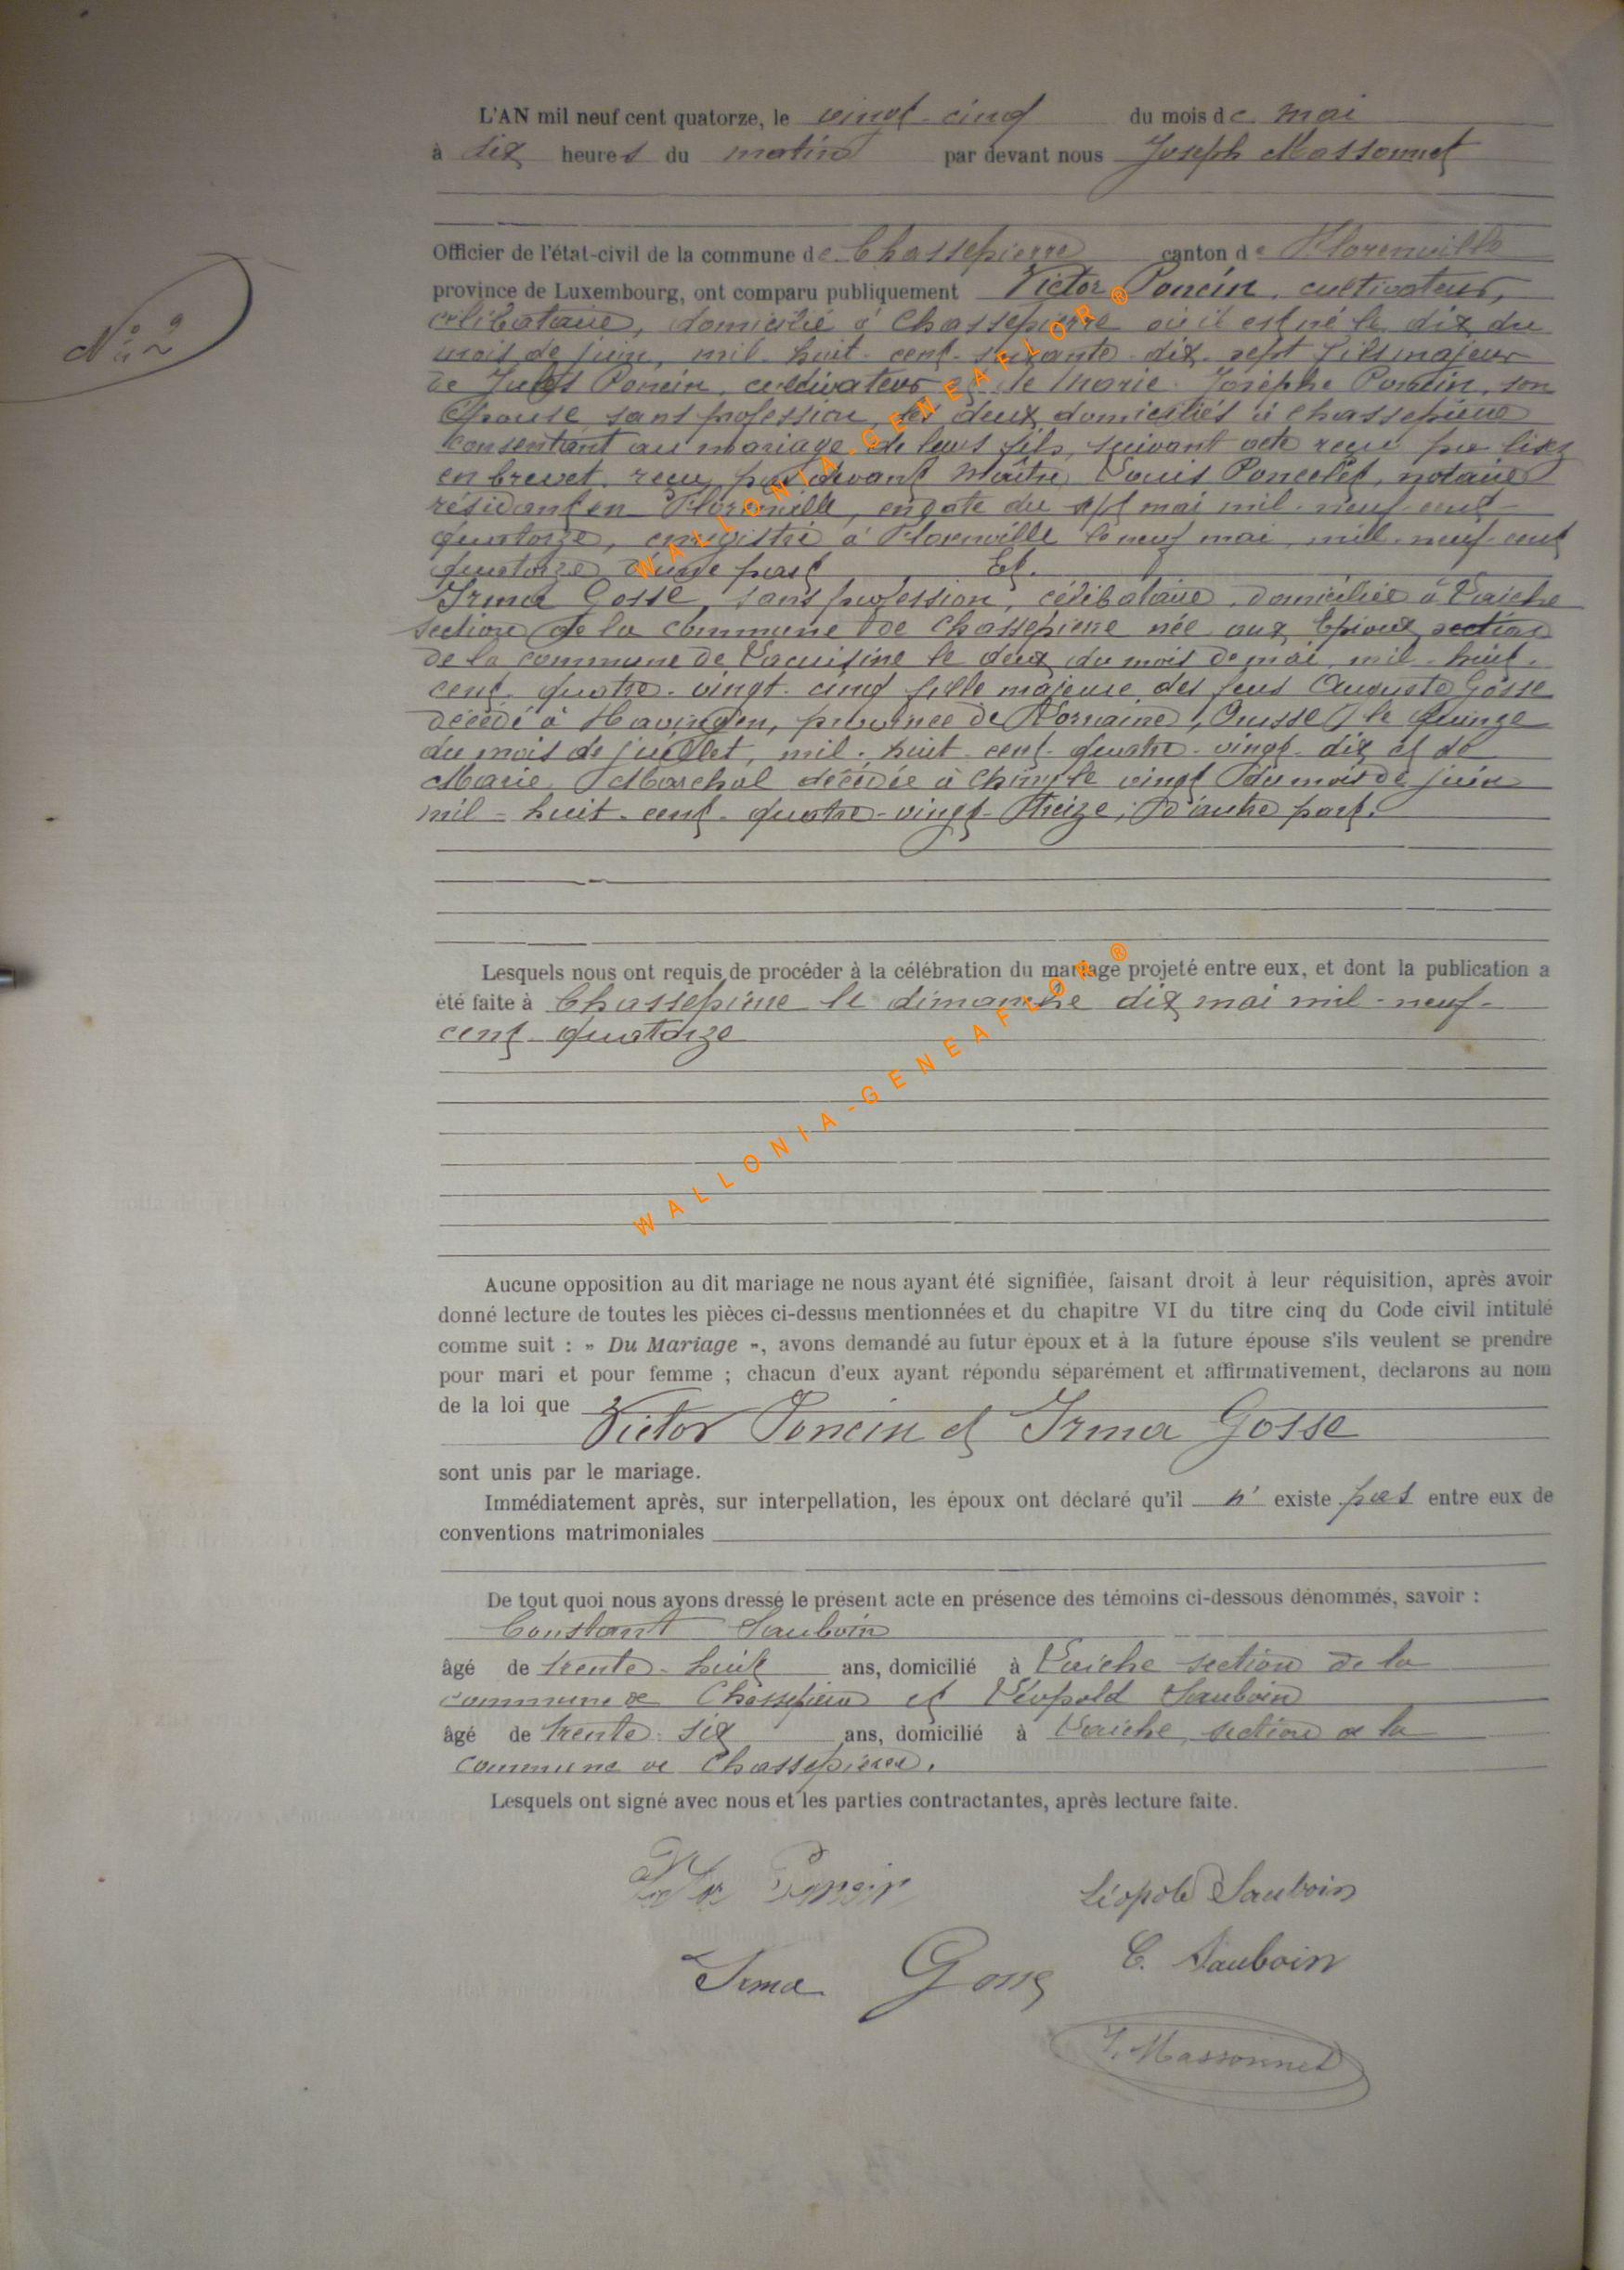 L'AN mil neuf cent quatorze, le vingt-cinq du mois de mai
à six heures du matin par devant nous Joseph Massonnet
Officier de l'état-civil de la commune de Chassepierre canton de Florenville
province de Luxembourg, ont comparu publiquement Victor Poncin, cultivateur,
célibataire, domicilié à Chassepierre où il est né le dix du
N° 2
mois de juin, mil-huit-cent-soixante-dix-sept fils majeur
de Jules Poncin, cultivateur et de Marie-Josèphe Poncin, son
épouse, sans profession, les deux domiciliés à Chassepierre
consentant au mariage de leur fils, suivant acte reçu par lisez
en brevet reçu par devant Maître Louis Poncelet, notaire
résidant en Florenville, en date du sept mai mil-neuf-cent-
quatorze, enregistré à Florenville le neuf mai mil-neuf-cent
quatorze d'une part Et.
Irma Gosse, sans profession, célibataire, domiciliée à Laiche
section de la commune de Chassepierre née aux Epioux section
de la commune de Lacuisine le deux du mois de mai mil-huit-
cent-quatre-vingt-cinq fille majeure des feus Auguste Gosse
décédé à Havingen, province de Lorraine, (Prusse) le quinze
du mois de juillet, mil-huit-cent-quatre-vingt-dix et de
Marie Maréchal décédée à Chiny le vingt du mois de juin
mil-huit-cent-quatre-vingt-treize, d'autre part.
Lesquels nous ont requis de procéder à la célébration du mariage projeté entre eux, et dont la publication a
été faite à Chassepierre le dimanche dix mai mil-neuf-
cent-quatorze
Aucune opposition au dit mariage ne nous ayant été signifiée, faisant droit à leur réquisition, après avoir
donné lecture de toutes les pièces ci-dessus mentionnées et du chapitre VI du titre cinq du Code civil intitulé
comme suit : " Du Mariage ", avons demandé au futur époux et à la future épouse s'ils veulent se prendre
pour mari et pour femme ; chacun d'eux ayant répondu séparément et affirmativement, déclarons au nom
de la loi que
Victor Poncin et Irma Gosse
sont unis par le mariage.
Immédiatement après, sur interpellation, les époux ont déclaré qu'il n' existe pas entre eux de
conventions matrimoniales
De tout quoi nous avons dressé le présent acte en présence des témoins ci-dessous dénommés, savoir :
Constant Sauboin
âgé de trente-huit ans, domicilié à Laiche section de la
commune de Chassepierre et Léopold Sauboin
âgé de trente-six ans, domicilié à Laiche, section de la
commune de Chassepierre.
Lesquels ont signé avec nous et les parties contractantes, après lecture faite.
Poncin
Léopold Sauboin
Irma Gosse
C. Sauboin
J. Massonnet
WALLONIA-GENEAFLOR®
WALLONIA-GENEAFLOR®